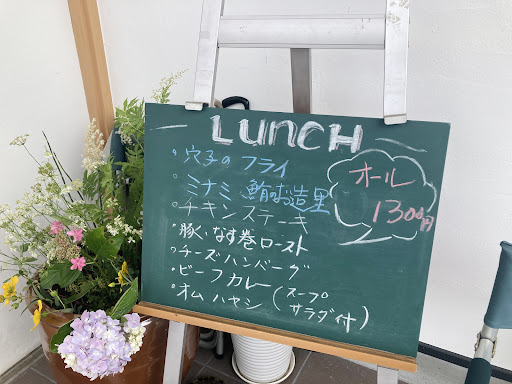 LUNCH
・穴子のフライ
・ミナミ鮪お造里
・チキンステーキ
・豚しなす巻ロースト
・チーズハンバーグ
・ビーフカレー
・オムハヤシ(スープ
サラダ付)
オール
1300円